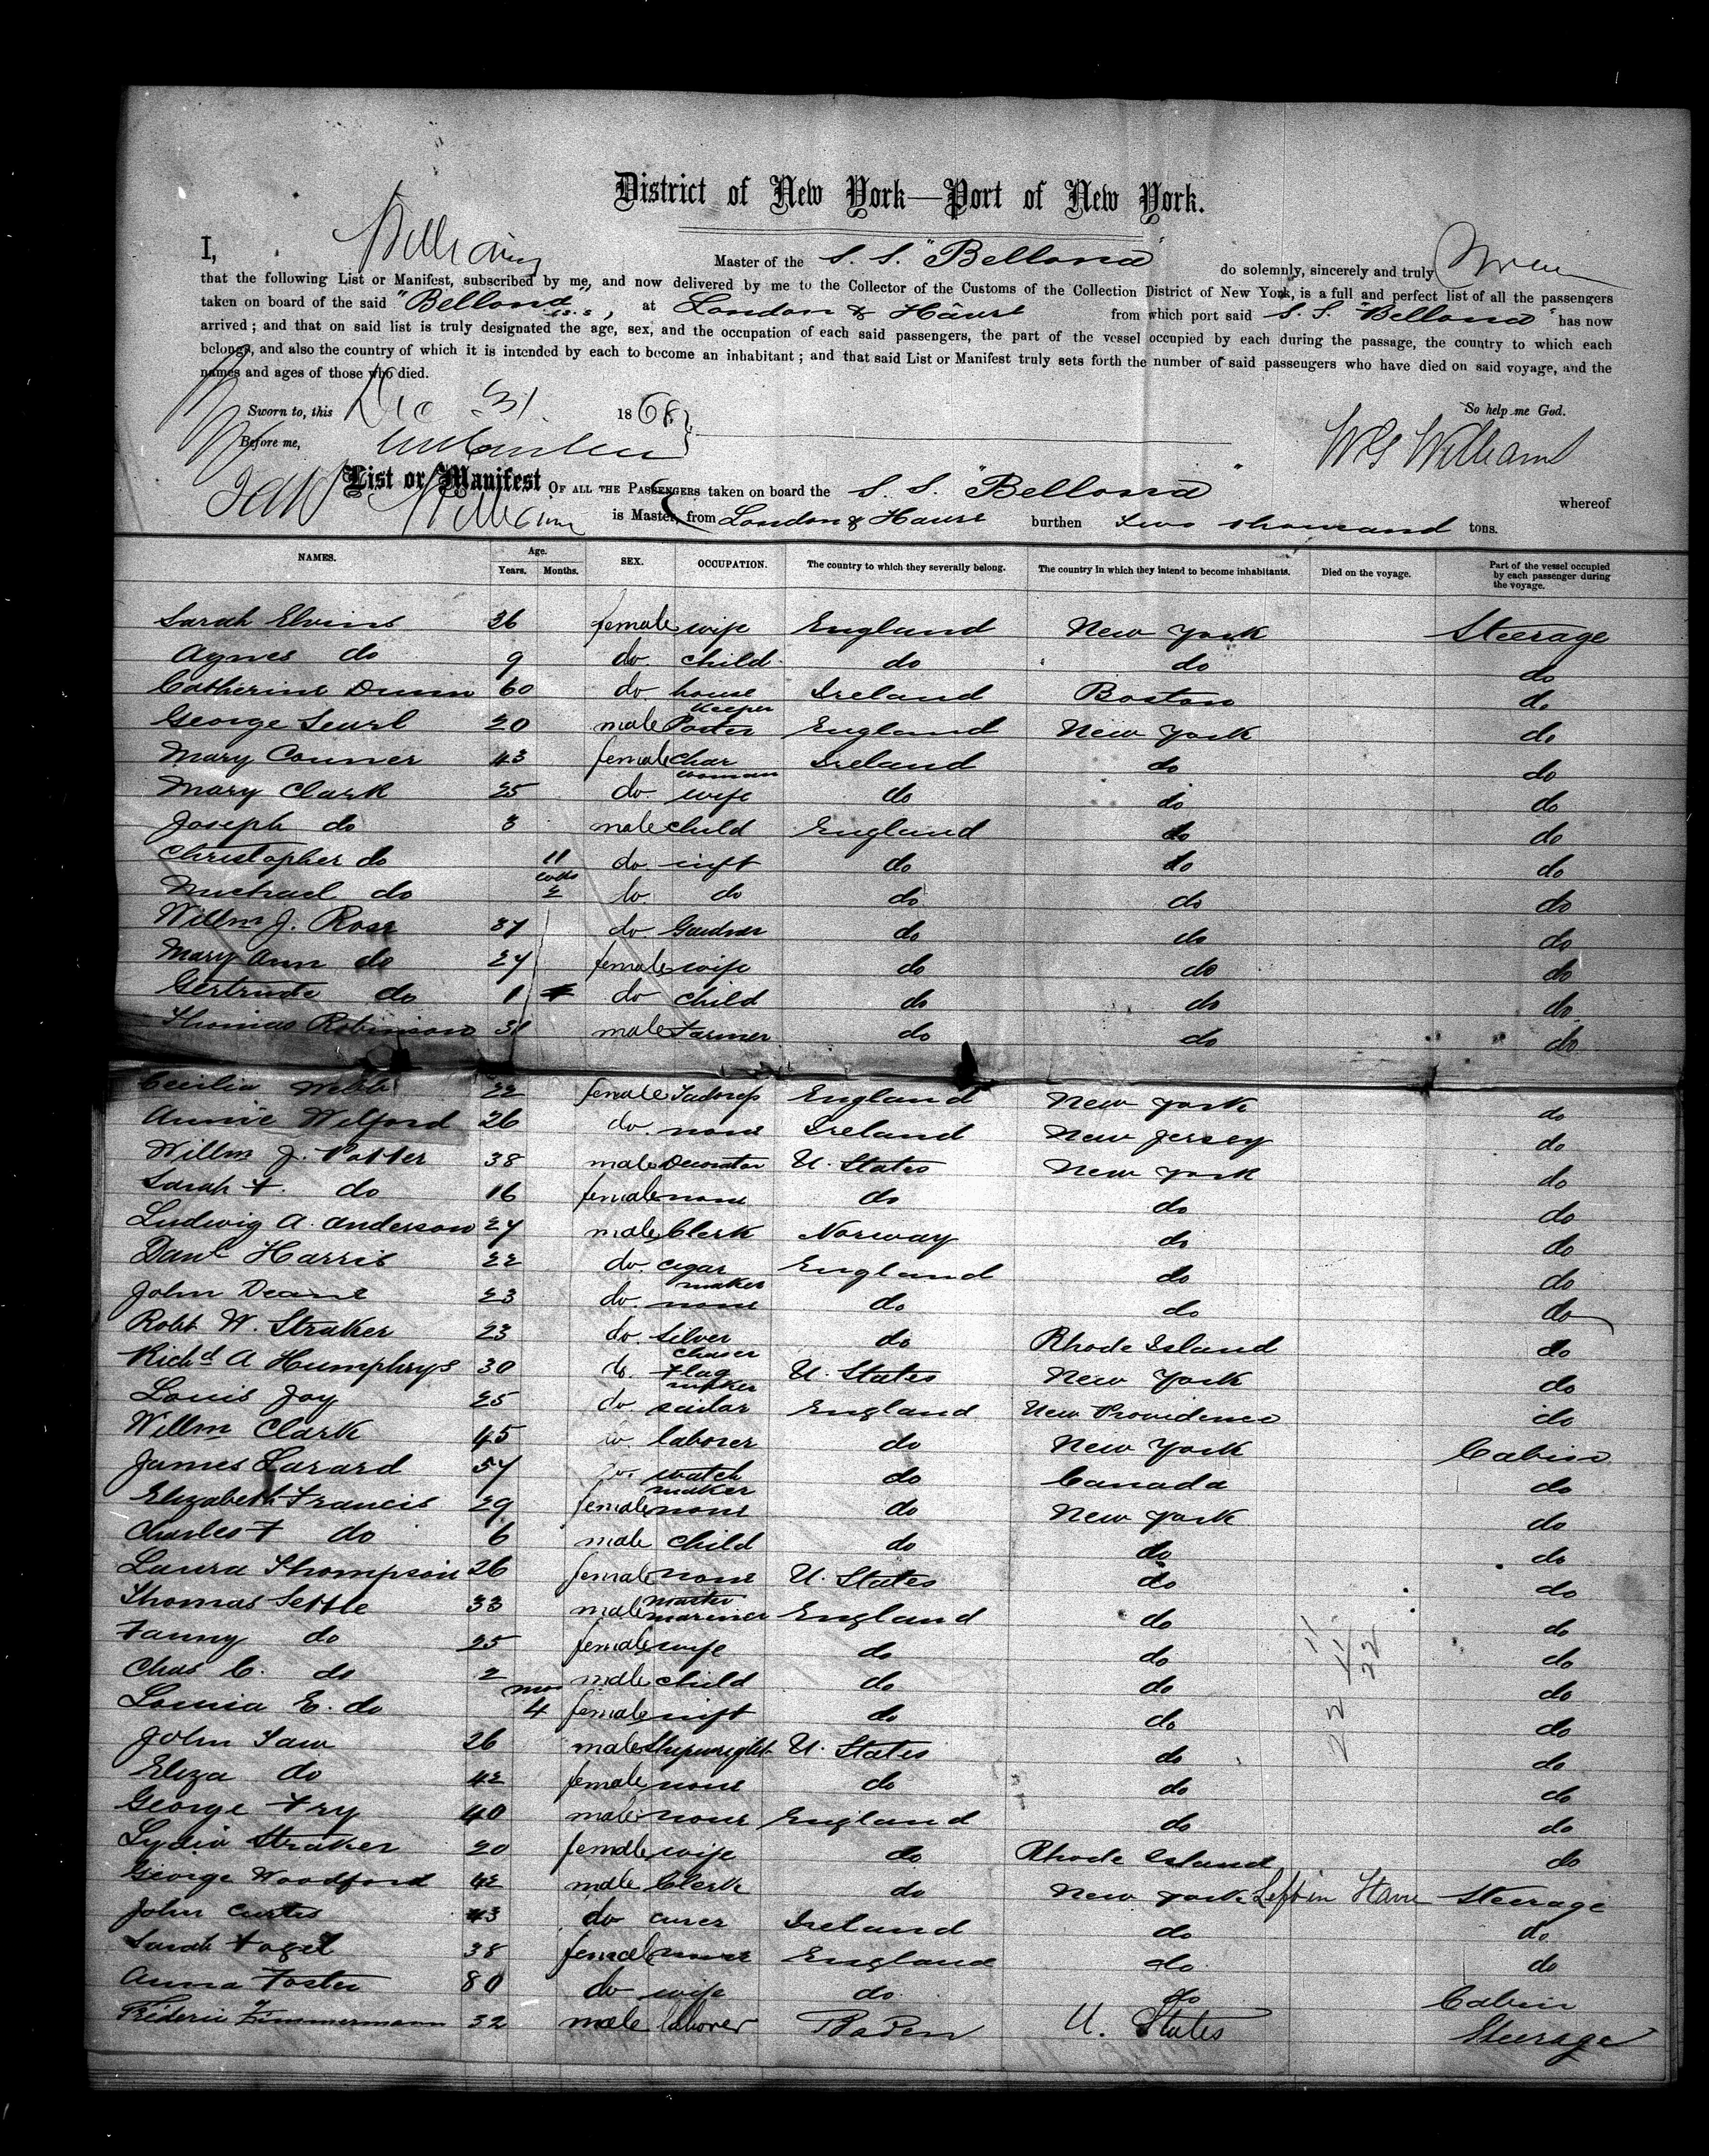 District of New York—Port of New York.
I, Williams Master of the S. S. "Bellona" do solemnly, sincerely and truly
that the following List or Manifest, subscribed by me, and now delivered by me to the Collector of the Customs of the Collection District of New York, is a full and perfect list of all the passengers
taken on board of the said "Bellona" s.s, at London & Havre from which port said S. S. "Bellona" has now
arrived; and that on said list is truly designated the age, sex, and the occupation of each said passengers, the part of the vessel occupied by each during the passage, the country to which each
belongs, and also the country of which it is intended by each to become an inhabitant; and that said List or Manifest truly sets forth the number of said passengers who have died on said voyage, and the
names and ages of those who died.
So help me God.
Sworn to, this Dec 31 1868
Before me,
W G Williams
List or Manifest OF ALL THE PASSENGERS taken on board the S. S. "Bellona" whereof
Williams is Master, from London & Havre burthen Two thousand tons.
NAMES. Age. Years. Months. SEX. OCCUPATION. The country to which they severally belong. The country in which they intend to become inhabitants. Died on the voyage. Part of the vessel occupied by each passenger during the voyage.
Sarah Elvins 36 female wife England New York Steerage
Agnes do 9 do child do do do
Catherine Dunn 60 do house keeper Ireland Boston do
George Searl 20 male Porter England New York do
Mary Conner 43 female Char woman Ireland do do
Mary Clark 25 do wife do do do
Joseph do 3 male child England do do
Christopher do 11 do inft do do do
Michael do 2 do do do do do
Willm J. Rose 37 do Gardner do do do
Mary Ann do 27 female wife do do do
Gertrude do 1 do child do do do
Thomas Robinson 31 male Farmer do do do
Cecilia Webb 22 female England New York do
Annie Welford 26 do none Ireland New Jersey do
Willm J. Potter 38 male Decorator U. States New York do
Sarah F. do 16 female none do do do
Ludwig A. Anderson 27 male Clerk Norway do do
Danl Harris 22 do cigar maker England do do
John Deane 23 do none do do do
Robt W. Straker 23 do silver chaser do Rhode Island do
Richd A Humphrys 30 do Flag maker U. States New York do
Louis Joy 25 do sailor England New Providence do
Willm Clark 45 do laborer do New York Cabin
James Larard 57 do watch maker do Canada do
Elizabeth Francis 29 female none do New York do
Charles F do 6 male child do do do
Laura Thompson 26 female none U. States do do
Thomas Settle 33 male master mariner England do do
Fanny do 25 female wife do do do
Chas C. do 2 male child do do do
Louisa E. do mos 4 female inft do do do
John Taw 26 male Shipwright U. States do do
Eliza do 42 female none do do do
George Fry 40 male none England do do
Lydia Straker 20 female wife do Rhode Island do
George Woodford 42 male Clerk do New York Left in Havre Steerage
John Curtis 43 do Ireland do do
Sarah Fogel 38 female England do do
Anna Foster 80 do wife do do Cabin
Fréderic Zimmermann 32 male laborer Baden U. States Steerage